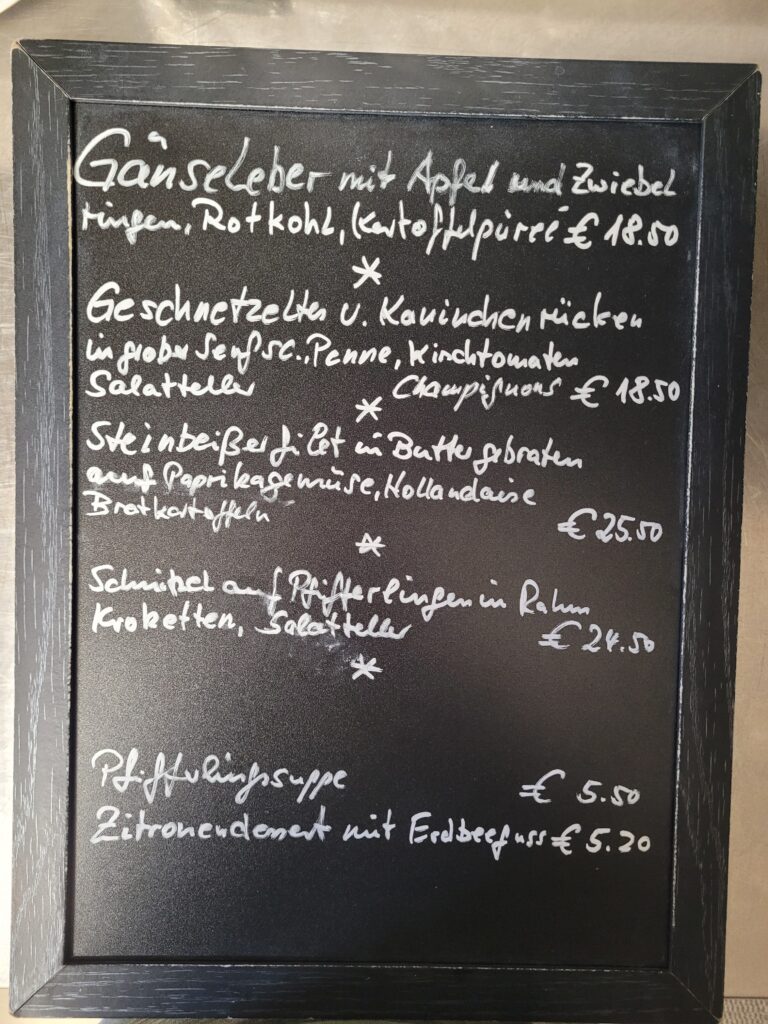 Gänseleber mit Apfel und Zwiebel
ringen, Rotkohl, Kartoffelpüree € 18.50
*
Geschnetzeltes v. Kaninchenrücken
in grober Senfsc., Penne, Kirschtomaten
Salatteller Champignons € 18.50
*
Steinbeißerfilet in Butter gebraten
auf Paprikagemüse, Hollandaise
Bratkartoffeln € 25.50
*
Schnitzel auf Pfifferlingen in Rahm
Kroketten, Salatteller € 24.50
*
Pfifferlingssuppe € 5.50
Zitronendessert mit Erdbeerguss € 5.20